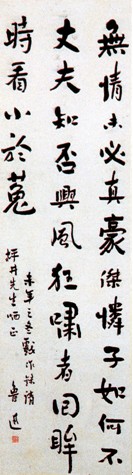 無情未必真豪傑憐子如何不
丈夫知否興風狂嘯者回眸
時看小於菟
未年之冬戲作録請
坪井先生哂正
魯迅